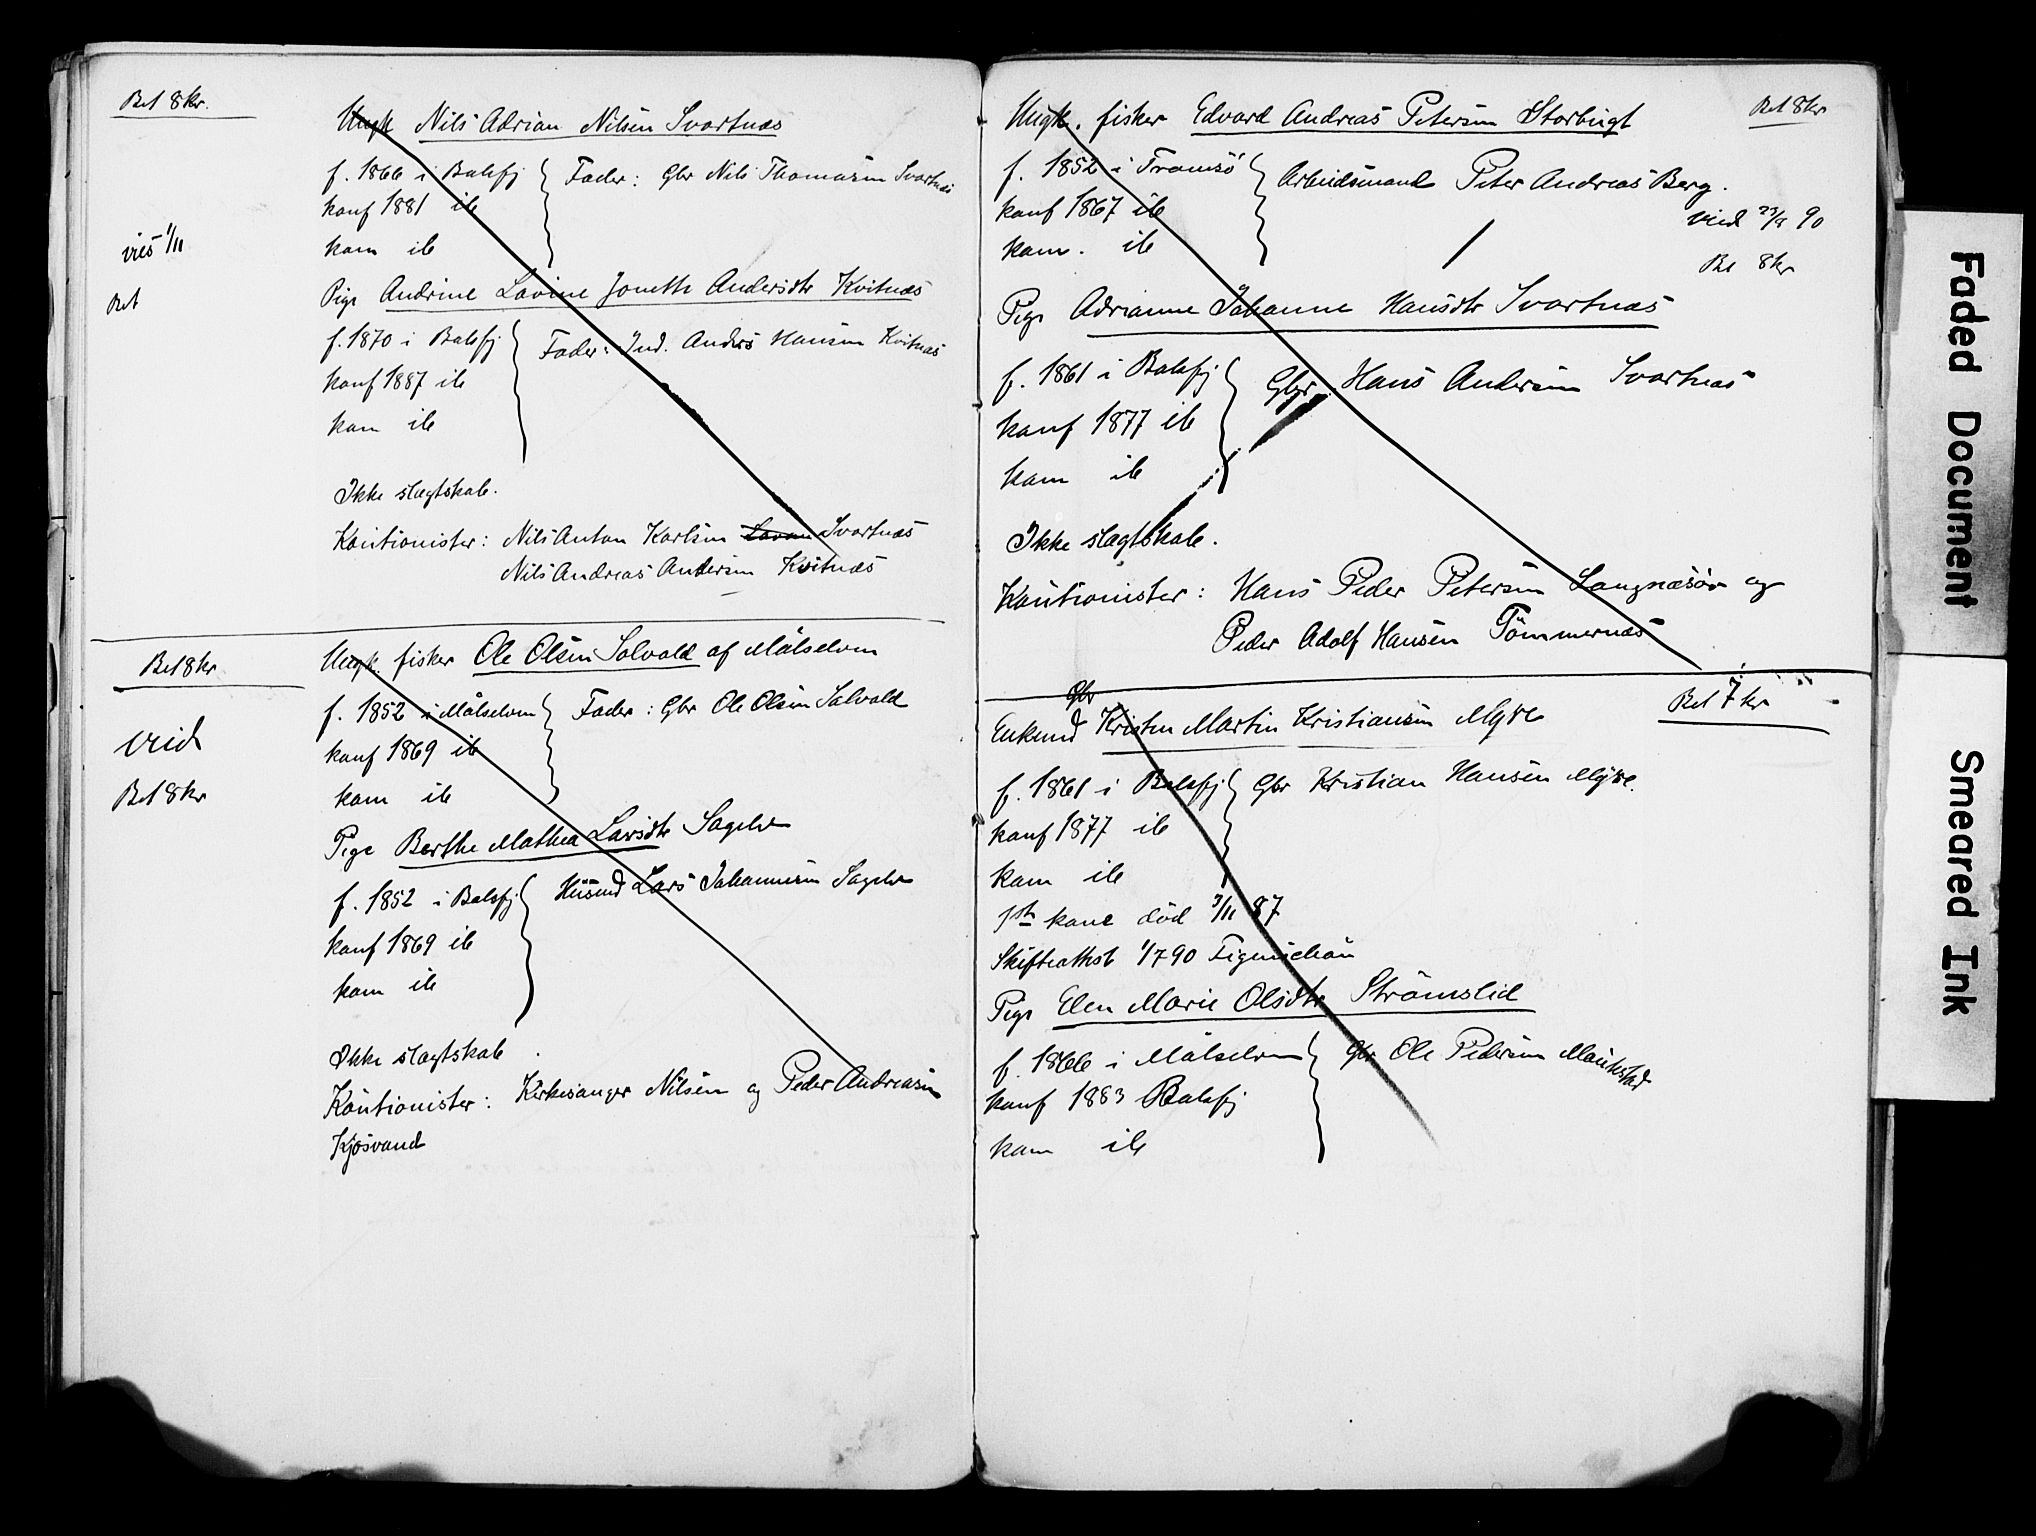 Bet 8 kr.
Ungk Nils Adrian Nilsen Svartnæs
f. 1866 i Balsfj Fader: Gbr Nils Thomasen Svartnæs
konf 1881 ib
kom ib
vies 1/11
Pige Andrine Lovine Jonette Andersdtr Kvitnæs
Bet
f. 1870 i Balsfj Fader: Ind. Anders Hansen Kvitnæs
konf 1887 ib
kom ib
Ikke slægtskab.
Kautionister: Nils Anton Karlsen Svartnæs
Nils Andreas Andersen Kvitnæs
Bet 8 kr
Ungk. fisker Ole Olsen Solvold af Målselven
f. 1852 i Målselven Fader: Gbr Ole Olsen Solvold
vied
konf 1869 ib
Bet 8 kr
kom ib
Pige Berthe Mathea Larsdtr Sagelv
f. 1852 i Balsfj Husmd Lars Johannesen Sagelv
konf 1869 ib
kom ib
Ikke slægtskab.
Kautionister: Kirkesanger Nilsen og Peder Andreasen
Kjosvand
Bet 8 kr
Ungk. fisker Edvard Andreas Petersen Storbugt
f. 1852 i Tromsö Arbeidsmand Peter Andreas Berg.
konf 1867 ib
vied 23/8 90
kom. ib
Bet 8 kr
Pige Adrianne Johanne Hansdtr Svartnæs
f. 1861 i Balsfj Gbr. Hans Andersen Svartnæs
konf 1877 ib
kom ib
Ikke slægtskab.
Kautionister: Hans Peder Petersen Langnæsör og
Peder Adolf Hansen Tömmernæs
Bet 7 kr
Gbr
Enkemd Kristen Martin Kristiansen Myre
f. 1861 i Balsfj Gbr Kristian Hansen Myre.
konf 1877 ib
kom ib
1ste kone död 3/11 87
Skifteattest 1/7 90
Pige Elen Marie Olsdtr Strömslid
f. 1866 i Målselven Gbr Ole Pedersen Moutestad
konf 1883 Balsfj
kom ib
Faded Document
Smeared Ink